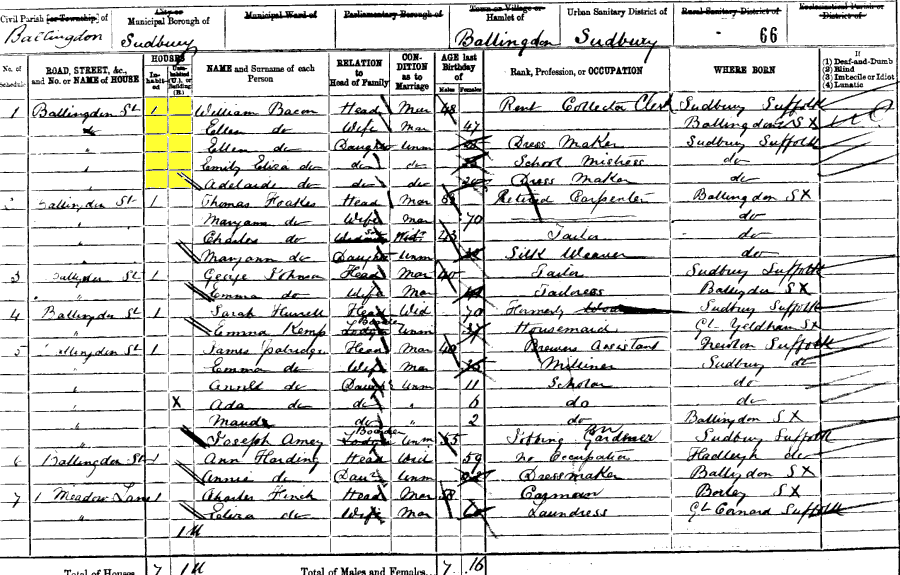 Civil Parish [or Township] of Ballingdon
City or Municipal Borough of Sudbury
Municipal Ward of
Parliamentary Borough of
Town or Village or Hamlet of Ballingdon
Urban Sanitary District of Sudbury
Rural Sanitary District of
Ecclesiastical Parish or District of
66
No. of Schedule
ROAD, STREET, &c., and No. or NAME of HOUSE
HOUSES
Inhabited
Uninhabited (U.), or Building (B.)
NAME and Surname of each Person
RELATION to Head of Family
CONDITION as to Marriage
AGE last Birthday of
Males
Females
Rank, Profession, or OCCUPATION
WHERE BORN
If
(1) Deaf-and-Dumb
(2) Blind
(3) Imbecile or Idiot
(4) Lunatic
1 Ballingdon St 1 William Bacon Head Mar 48 Rent Collector Clerk Sudbury Suffolk
do Ellen do Wife Mar 47 Ballingdon SX
" Ellen do Daughtr Unm Dress Maker Sudbury Suffolk
" Emily Eliza do do do School Mistress do
" Adelaide do do do 20 Dress Maker do
2 Ballingdon St 1 Thomas Hoakes Head Mar Retired Carpenter Ballingdon SX
" Maryann do Wife Mar 70 do
" Charles do Son Widr 43 Tailor do
" Maryann do Daughtr Unm Silk Weaver do
3 Ballingdon St 1 George Head Mar 40 Tailor Sudbury Suffolk
" Emma do Wife Mar Tailoress Ballingdon SX
4 Ballingdon St 1 Sarah Hurrell Head Wid 70 Formerly Sudbury Suffolk
" Emma Kemp Lodger Boarder Unm 37 Housemaid Gt Yeldham SX
5 Ballingdon St 1 James Head Mar 40 Brewers Assistant Suffolk
" Emma do Wife Mar Milliner Sudbury do
" do Daugr Unm 11 Scholar do
" X Ada do do " 6 do do
" Maude do 2 do Ballingdon SX
" Joseph Amey Lodger Boarder Unm 55 Jobbing Gardener Sudbury Suffolk
6 Ballingdon St 1 Ann Harding Head Wid 59 no Occupation Hadleigh do
" Annie do Daur Unm Dressmaker Ballingdon SX
7 1 Meadow Lane 1 Charles Finch Head Mar 58 Carman Borley SX
" Eliza do Wife Mar Laundress Gt Cornard Suffolk
1 U
Total of Houses 7 1 U Total of Males and Females.. 7 16